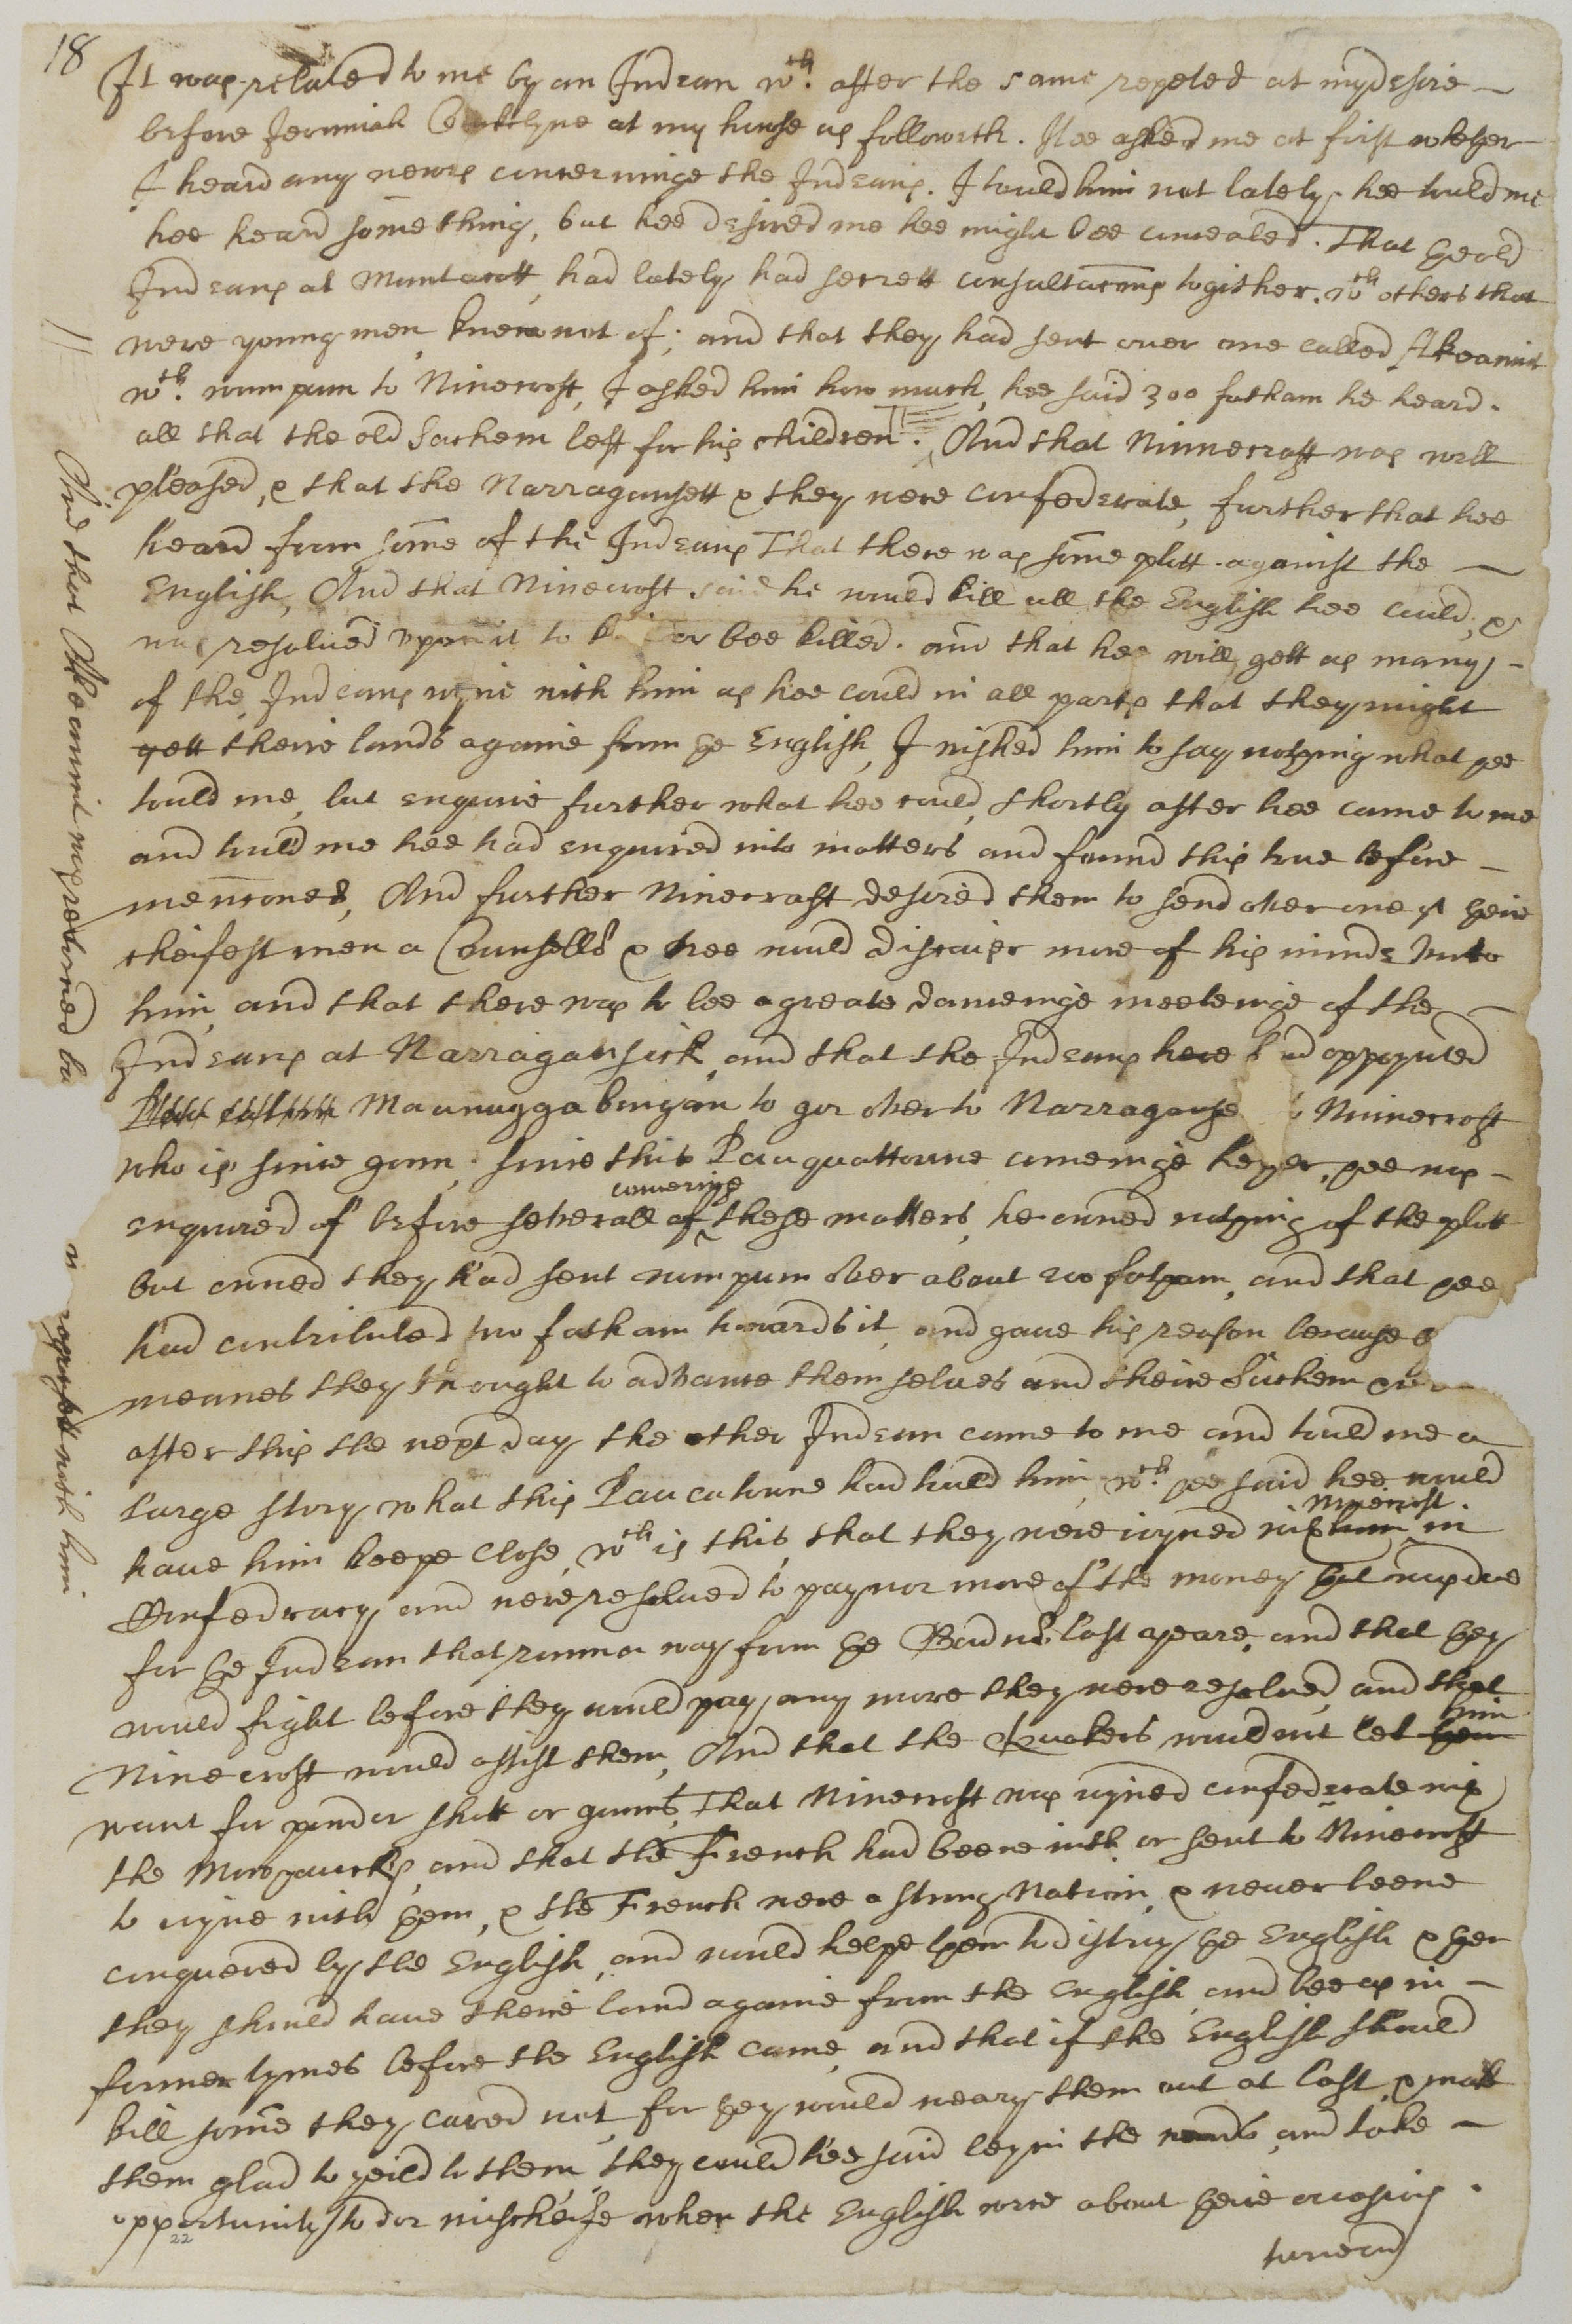 18
It was related to me by an Indean wch. after the same repeted at my desire
before Jeremiah Conkelyne at my house as followeth. Hee asked me at first wheyer
I heard any newes concerninge the Indeans. I tould him not lately, hee tould me
hee heard something, but hee desired me hee might bee concealed. That ye old
Indeans at Muntacott, had lately had secrett consultacions together. wth others that
were young men knew not of; and that they had sent ouer one called Akeamint
wth. wumpum to Ninecroft, I asked him how much, hee said 300 fatham he heard.
all that the old Sachem left for his children. And that Ninnecraft was well
pleased, & that the Narragansett & they were confederate, further that hee
heard from some of the Indeans That there was some plott against the
English, And that Ninecroft said he would kill all the English hee could, &
was resolued upon it to kill or bee killed. and that hee will gett as many
of the Indeans ioyne with him as hee could in all parts that they might
gett theire lands againe from ye English, I wished him to say nothing what yee
tould me, but enquire further what hee could, shortly after hee came to me
and tould me hee had enquired into matters and found this true before
mencioned, And further Ninecraft desired them to send ouer one of yeire
cheifest men a Counsellr & hee would discouer more of his minde unto
him, and that there was to bee a greate danceinge meeteinge of the
Indeans at Narragansick, and that the Indeans here had appoynted
Maunuggabongan to goe ouer to Narraganse Ninnecroft
who is since gonn. since this Pauquattoune comeinge heyer, yee was
concerninge
enquired of before seuerall of these matters, he owned nothing of the plott
but owned they had sent wumpum ouer about 200 fatham, and that yee
had contributed two fatham towards it, and gaue his reason because
meanes they thought to aduance themselues and theire Sachem
after this the next day the other Indean came to me and tould me a
large story what this Paucatoune had tould him, wch. yee said hee would
Ninecroft.
haue him keepe close, wch is this, that they were ioyned with him in
Confedracy and were resolued to pay noe more of the money yat was due
for ye Indean that runn a way from ye last yeare, and that yey
would fight before they would pay any more they were resolued, and that
him
Ninecroft would assist them, And that the Quakers would not let yem
want for powder shott or gunns, That Ninecroft was ioyned confederate with
the Mowhauks, and that the French had beene with or sent to Ninecroft
to ioyne with yem, & the French were a strong Nation, & neuer beene
conquered by the English, and would helpe them to distroy ye English & yen
they should haue theire land againe from the English and bee as in
former tymes before the English came, and that if the English should
kill some they cared not, for yey would weary them out at last & make
them glad to yeild to them, they could hee said ley in the woods, and take
opportunity to doe mischeife when the English were about yeire occasions.
22
turne ouer
And that Akeamint was returned bu
n ragansett with him